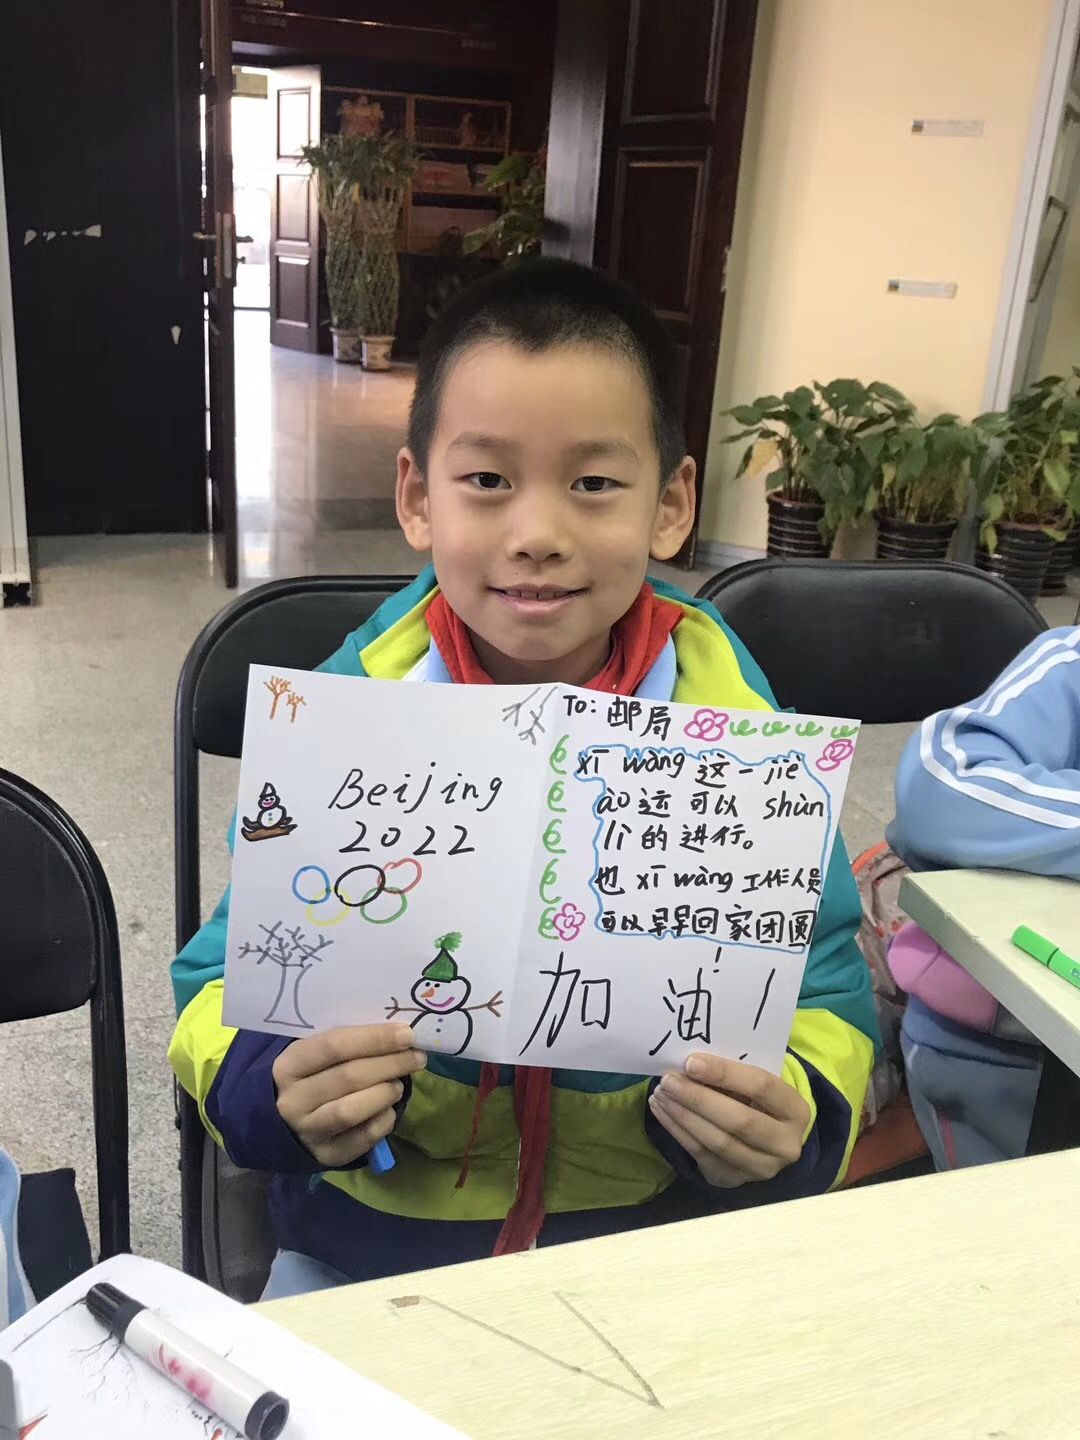 Beijing
2022
To: 邮局
xī wàng 这一 jiè
ào 运 可以 shùn
lì 的 进行。
也 xī wàng 工作人员
可以早早回家团圆
!
加油!